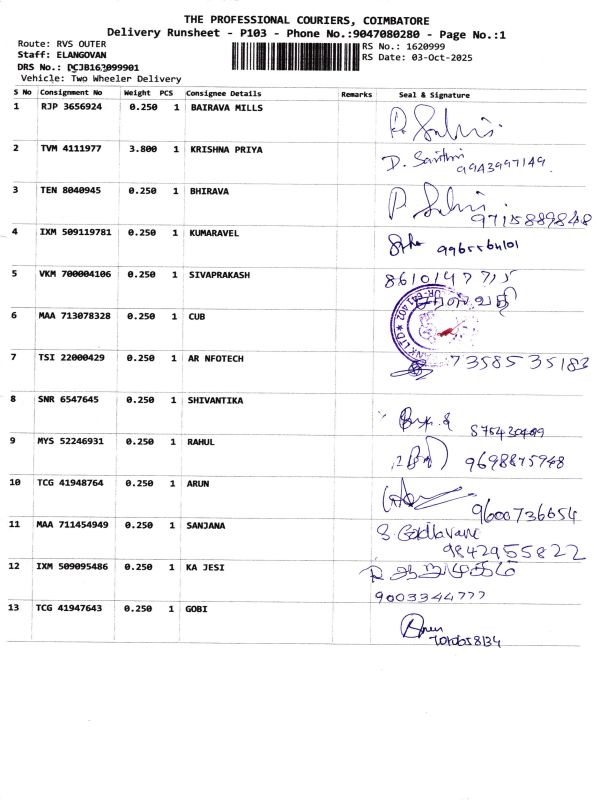 THE PROFESSIONAL COURIERS, COIMBATORE
Delivery Runsheet - P103 - Phone No.:9047080280 - Page No.:1
Route: RVS OUTER
RS No.: 1620999
Staff: ELANGOVAN
RS Date: 03-Oct-2025
DRS No.: DCJB163099901
Vehicle: Two Wheeler Delivery
S No Consignment No Weight PCS Consignee Details Remarks Seal & Signature
1 RJP 3656924 0.250 1 BAIRAVA MILLS
2 TVM 4111977 3.800 1 KRISHNA PRIYA D.
9943997149
3 TEN 8040945 0.250 1 BHIRAVA
9715889848
4 IXM 509119781 0.250 1 KUMARAVEL
5 VKM 700004106 0.250 1 SIVAPRAKASH
6 MAA 713078328 0.250 1 CUB
7 TSI 22000429 0.250 1 AR NFOTECH 7358535183
8 SNR 6547645 0.250 1 SHIVANTIKA
9 MYS 52246931 0.250 1 RAHUL 9698875948
10 TCG 41948764 0.250 1 ARUN
9600736654
11 MAA 711454949 0.250 1 SANJANA S.
9842955822
12 IXM 509095486 0.250 1 KA JESI R ஆறுமுகம்
9003344777
13 TCG 41947643 0.250 1 GOBI